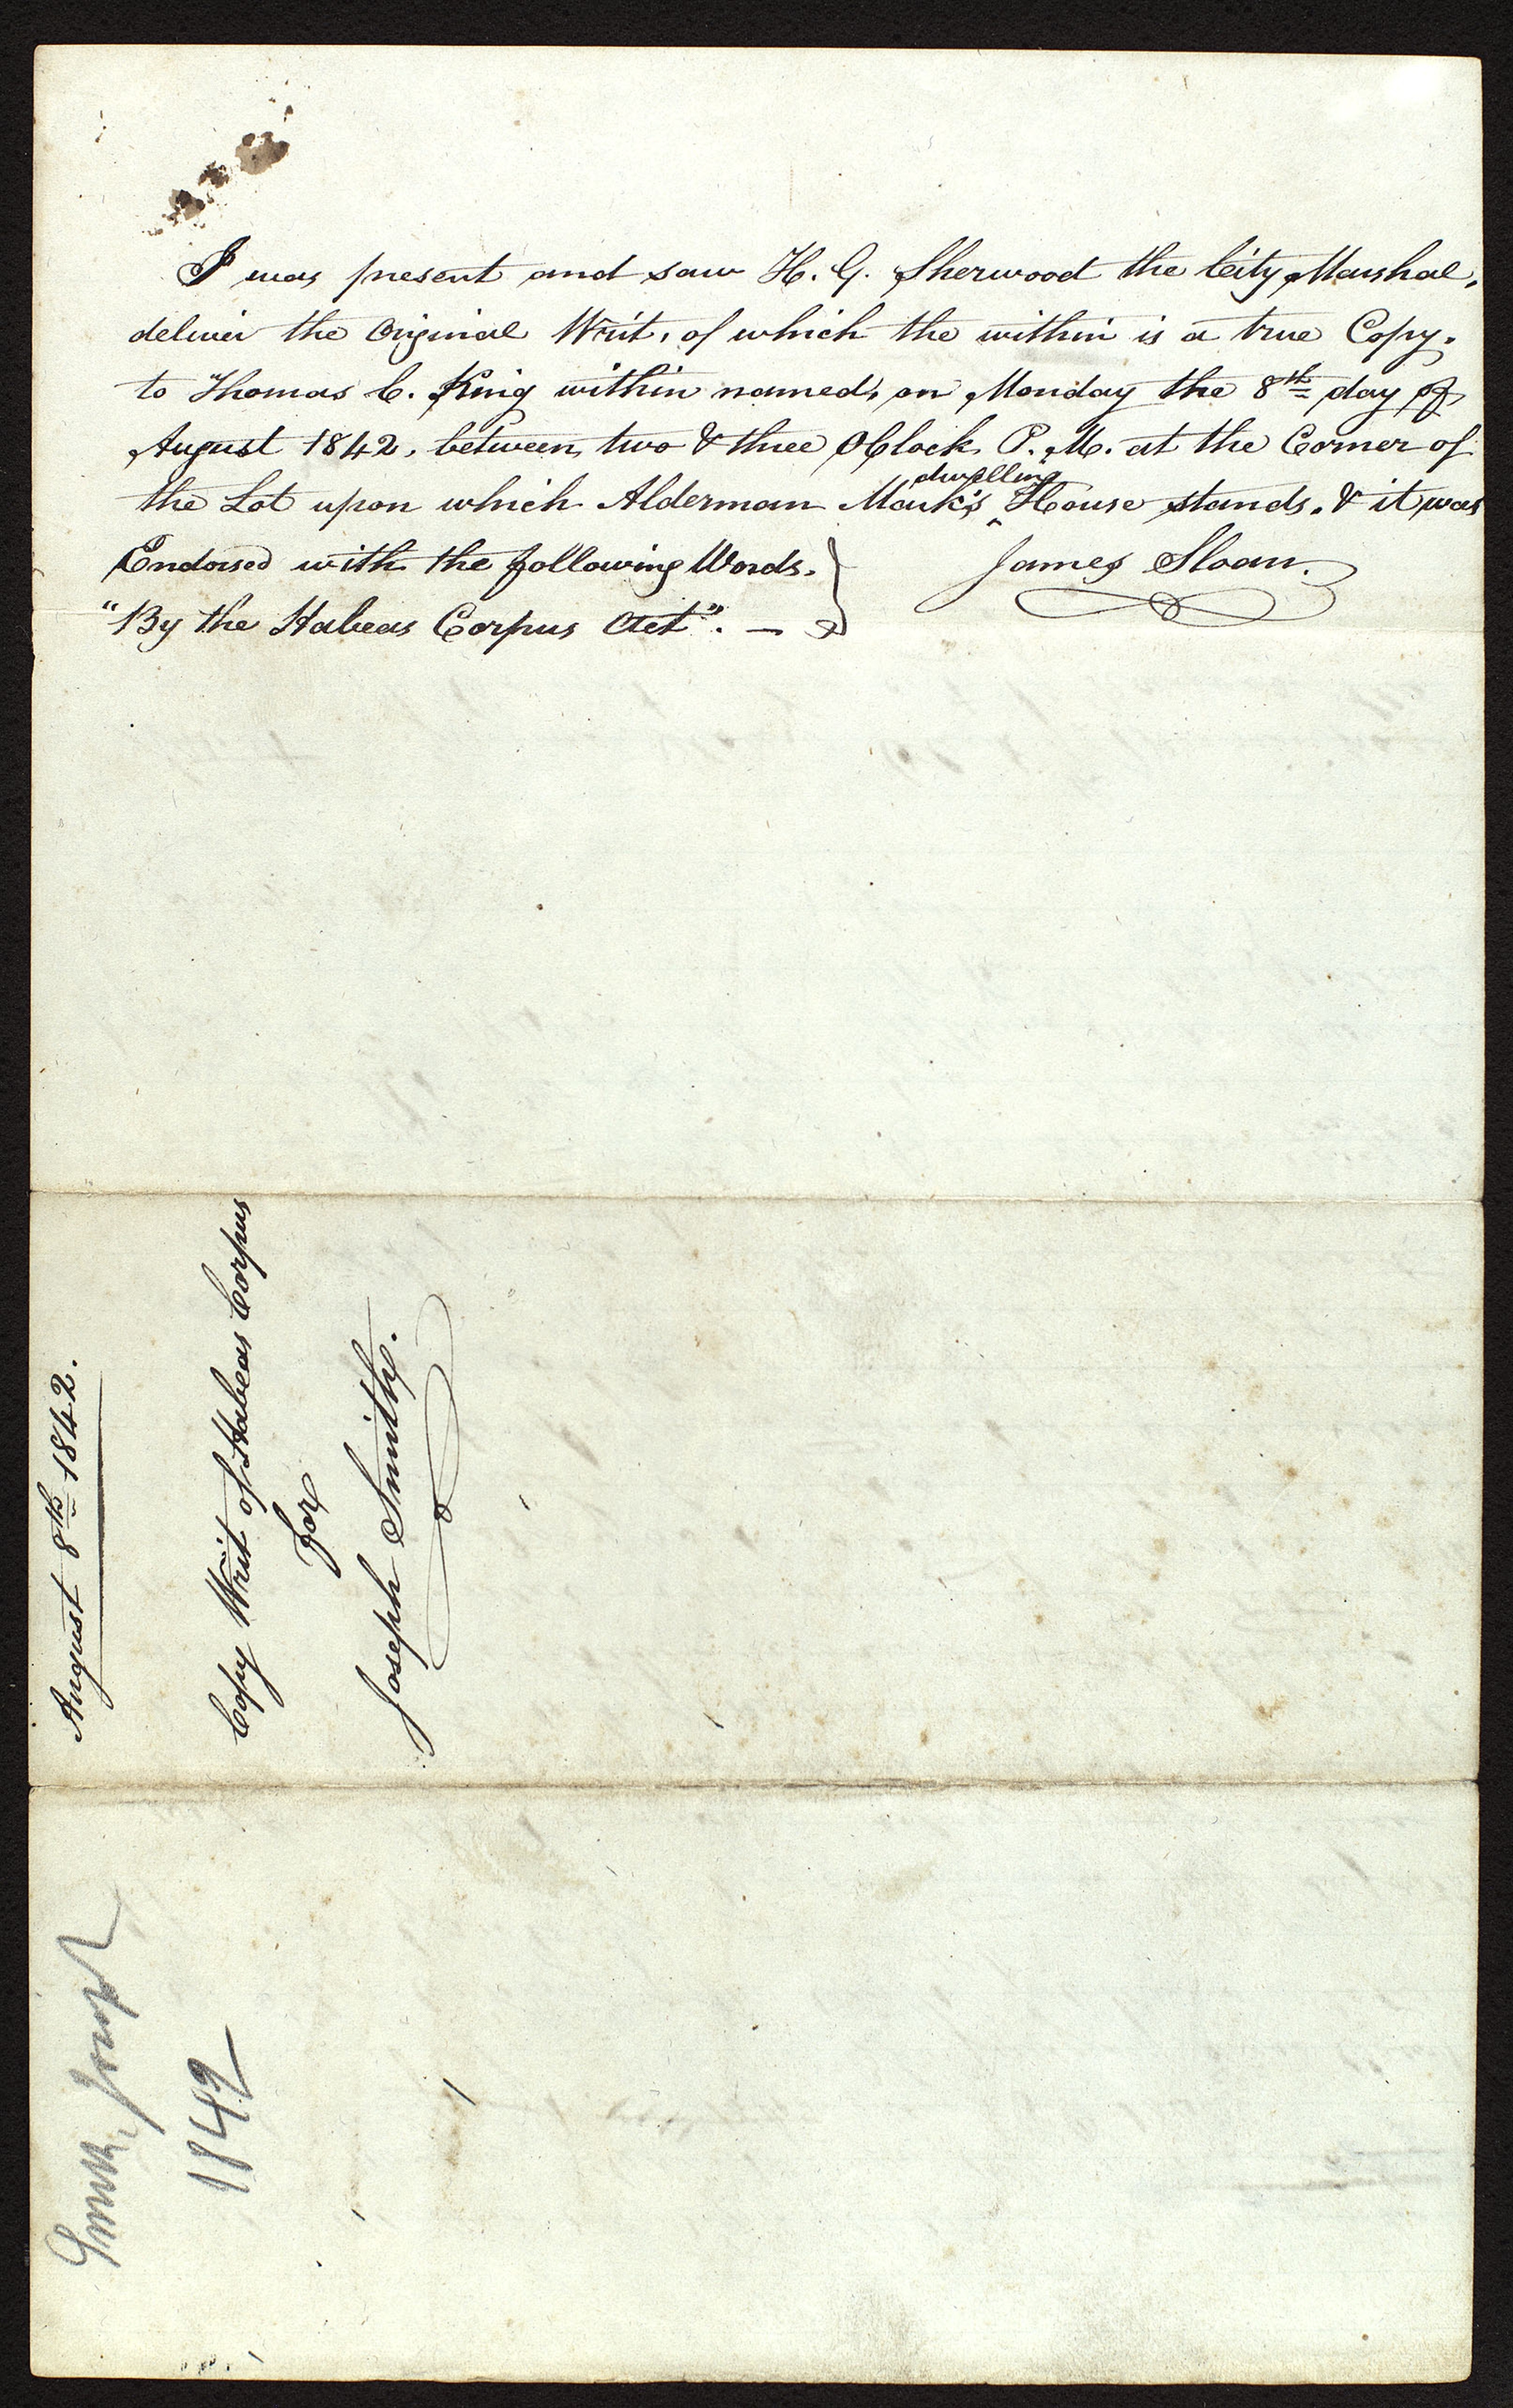 I was present and saw H. G. Sherwood the City Marshal,
deliver the Original Writ, of which the within is a true Copy,
to Thomas C. King within named, on Monday the 8th day of
August 1842, between two & three O'Clock P. M. at the Corner of
the Lot upon which Alderman Mark's dwelling House stands. & it was
Endorsed with the following Words.
"By the Habeas Corpus Act". —
James Sloan.
August 8th 1842.
Copy Writ of Habeas Corpus
for
Joseph Smith.
Smith, Joseph
1842